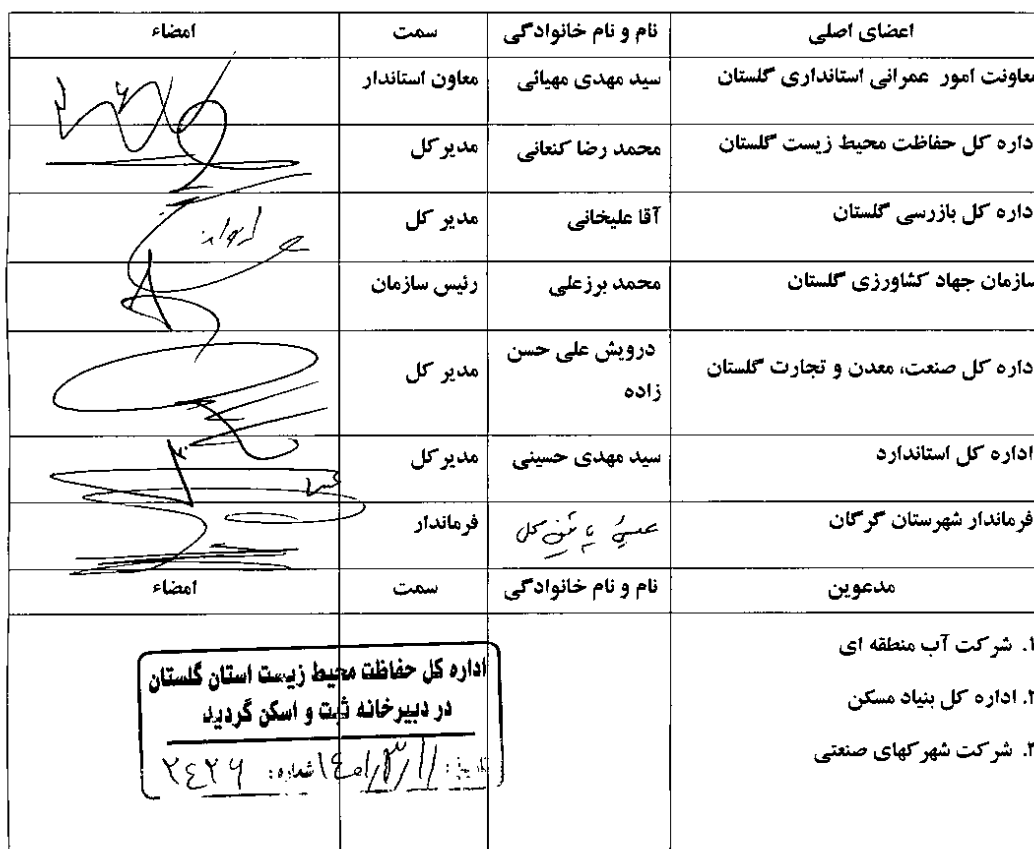 اعضای اصلی نام و نام خانوادگی سمت امضاء
معاونت امور عمرانی استانداری گلستان سید مهدی مهیائی معاون استاندار
داره کل حفاظت محیط زیست گلستان محمد رضا کنعانی مدیر کل
داره کل بازرسی گلستان آقا علیخانی مدیر کل
سازمان جهاد کشاورزی گلستان محمد برزعلی رئیس سازمان
داره کل صنعت، معدن و تجارت گلستان درویش علی حسن زاده مدیر کل
اداره کل استاندارد سید مهدی حسینی مدیر کل
فرماندار شهرستان گرگان فرماندار
مدعوین نام و نام خانوادگی سمت امضاء
۱. شرکت آب منطقه ای
۲. اداره کل بنیاد مسکن
۳. شرکت شهرکهای صنعتی
اداره کل حفاظت محیط زیست استان گلستان
در دبیرخانه ثبت و اسکن گردید
تاریخ: ۱۴۰۱/۳/۱۱ شماره: ۲۴۲۶